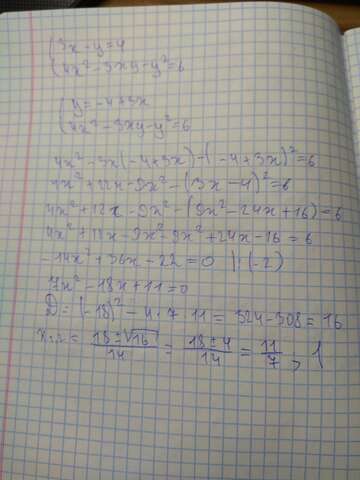 {3x-y=4
{4x²-3xy-y²=6
{y=-4+3x
{4x²-3xy-y²=6
4x²-3x(-4+3x)-(-4+3x)²=6
4x²+12x-9x²-(3x-4)²=6
4x²+12x-9x²-(9x²-24x+16)=6
4x²+12x-9x²-9x²+24x-16=6
-14x²+36x-22=0 ||:(-2)
7x²-18x+11=0
D=(-18)²-4·7·11=324-308=16
x₁,₂=(18±√16)/14=(18±4)/14=11/7, 1